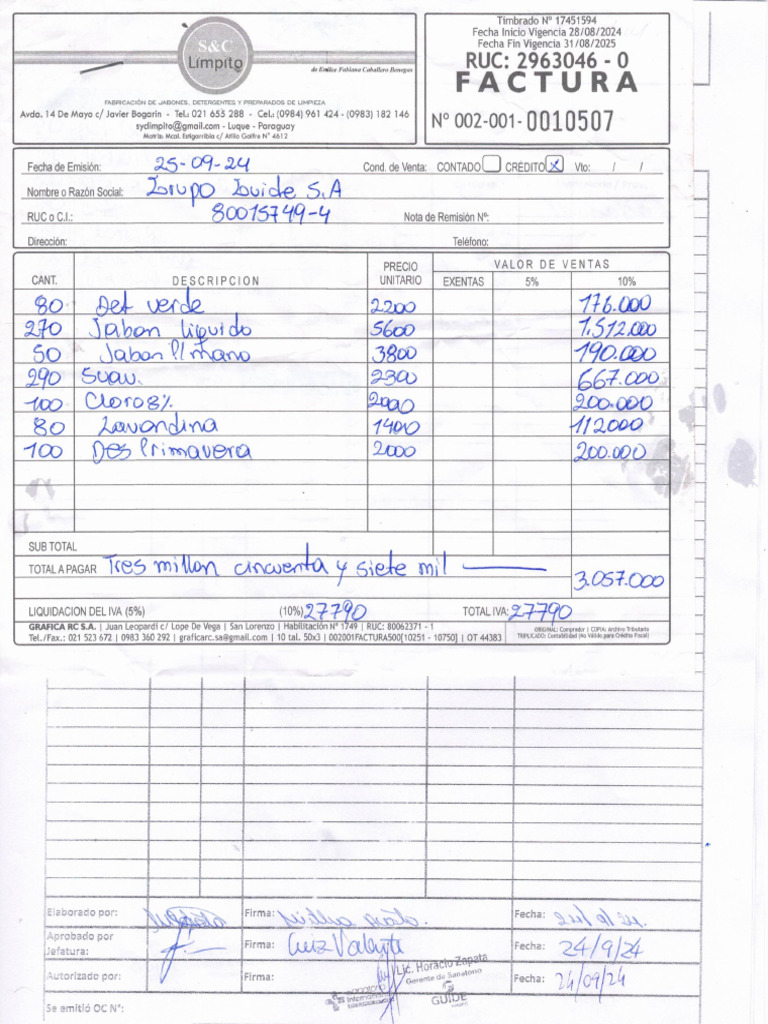 S&C
Límpito
de Emilce Fabiana Caballero Benegas
FABRICACIÓN DE JABONES, DETERGENTES Y PREPARADOS DE LIMPIEZA
Avda. 14 De Mayo c/ Javier Bogarin - Tel.: 021 655 288 - Cel.: (0984) 961 424 - (0983) 182 146
sydlimpito@gmail.com - Luque - Paraguay
Matriz: Mcal. Estigarribia c/ Atilio Galfre N° 4612
Timbrado Nº 17451594
Fecha Inicio Vigencia 28/08/2024
Fecha Fin Vigencia 31/08/2025
RUC: 2963046 - 0
FACTURA
Nº 002-001- 0010507
Fecha de Emisión: 25-09-24 Cond. de Venta: CONTADO CRÉDITO X Vto: / /
Nombre o Razón Social: Grupo Guide S.A
RUC o C.I.: 80015749-4 Nota de Remisión Nº:
Dirección: Teléfono:
CANT. DESCRIPCION PRECIO UNITARIO VALOR DE VENTAS
EXENTAS 5% 10%
80 Det verde 2200 176.000
270 Jabon liquido 5600 1.512.000
50 Jabon P/mano 3800 190.000
290 Suav. 2300 667.000
100 Cloro 8% 2000 200.000
80 Lavandina 1400 112000
100 Des Primavera 2000 200.000
SUB TOTAL
TOTAL A PAGAR Tres millon cincuenta y siete mil 3.057.000
LIQUIDACION DEL IVA (5%) (10%) 27790 TOTAL IVA: 27790
GRAFICA RC S.A. | Juan Leopardi c/ Lope De Vega | San Lorenzo | Habilitación Nº 1749 | RUC: 80062371 - 1
Tel./Fax.: 021 523 672 | 0983 360 292 | graficarc.sa@gmail.com | 10 tal. 50x3 | 002001FACTURA500[10251 - 10750] | OT 44383
ORIGINAL: Comprador | COPIA: Archivo Tributario
TRIPLICADO: Contabilidad (No Válido para Crédito Fiscal)
Elaborado por: Firma: Fecha:
Aprobado por Jefatura: Firma: Luiz Fecha: 24/9/24
Autorizado por: Firma: Lic. Horacio Zapata Fecha: 24/09/24
Gerente de Sanatorio
GUIDE
Se emitió OC N°: